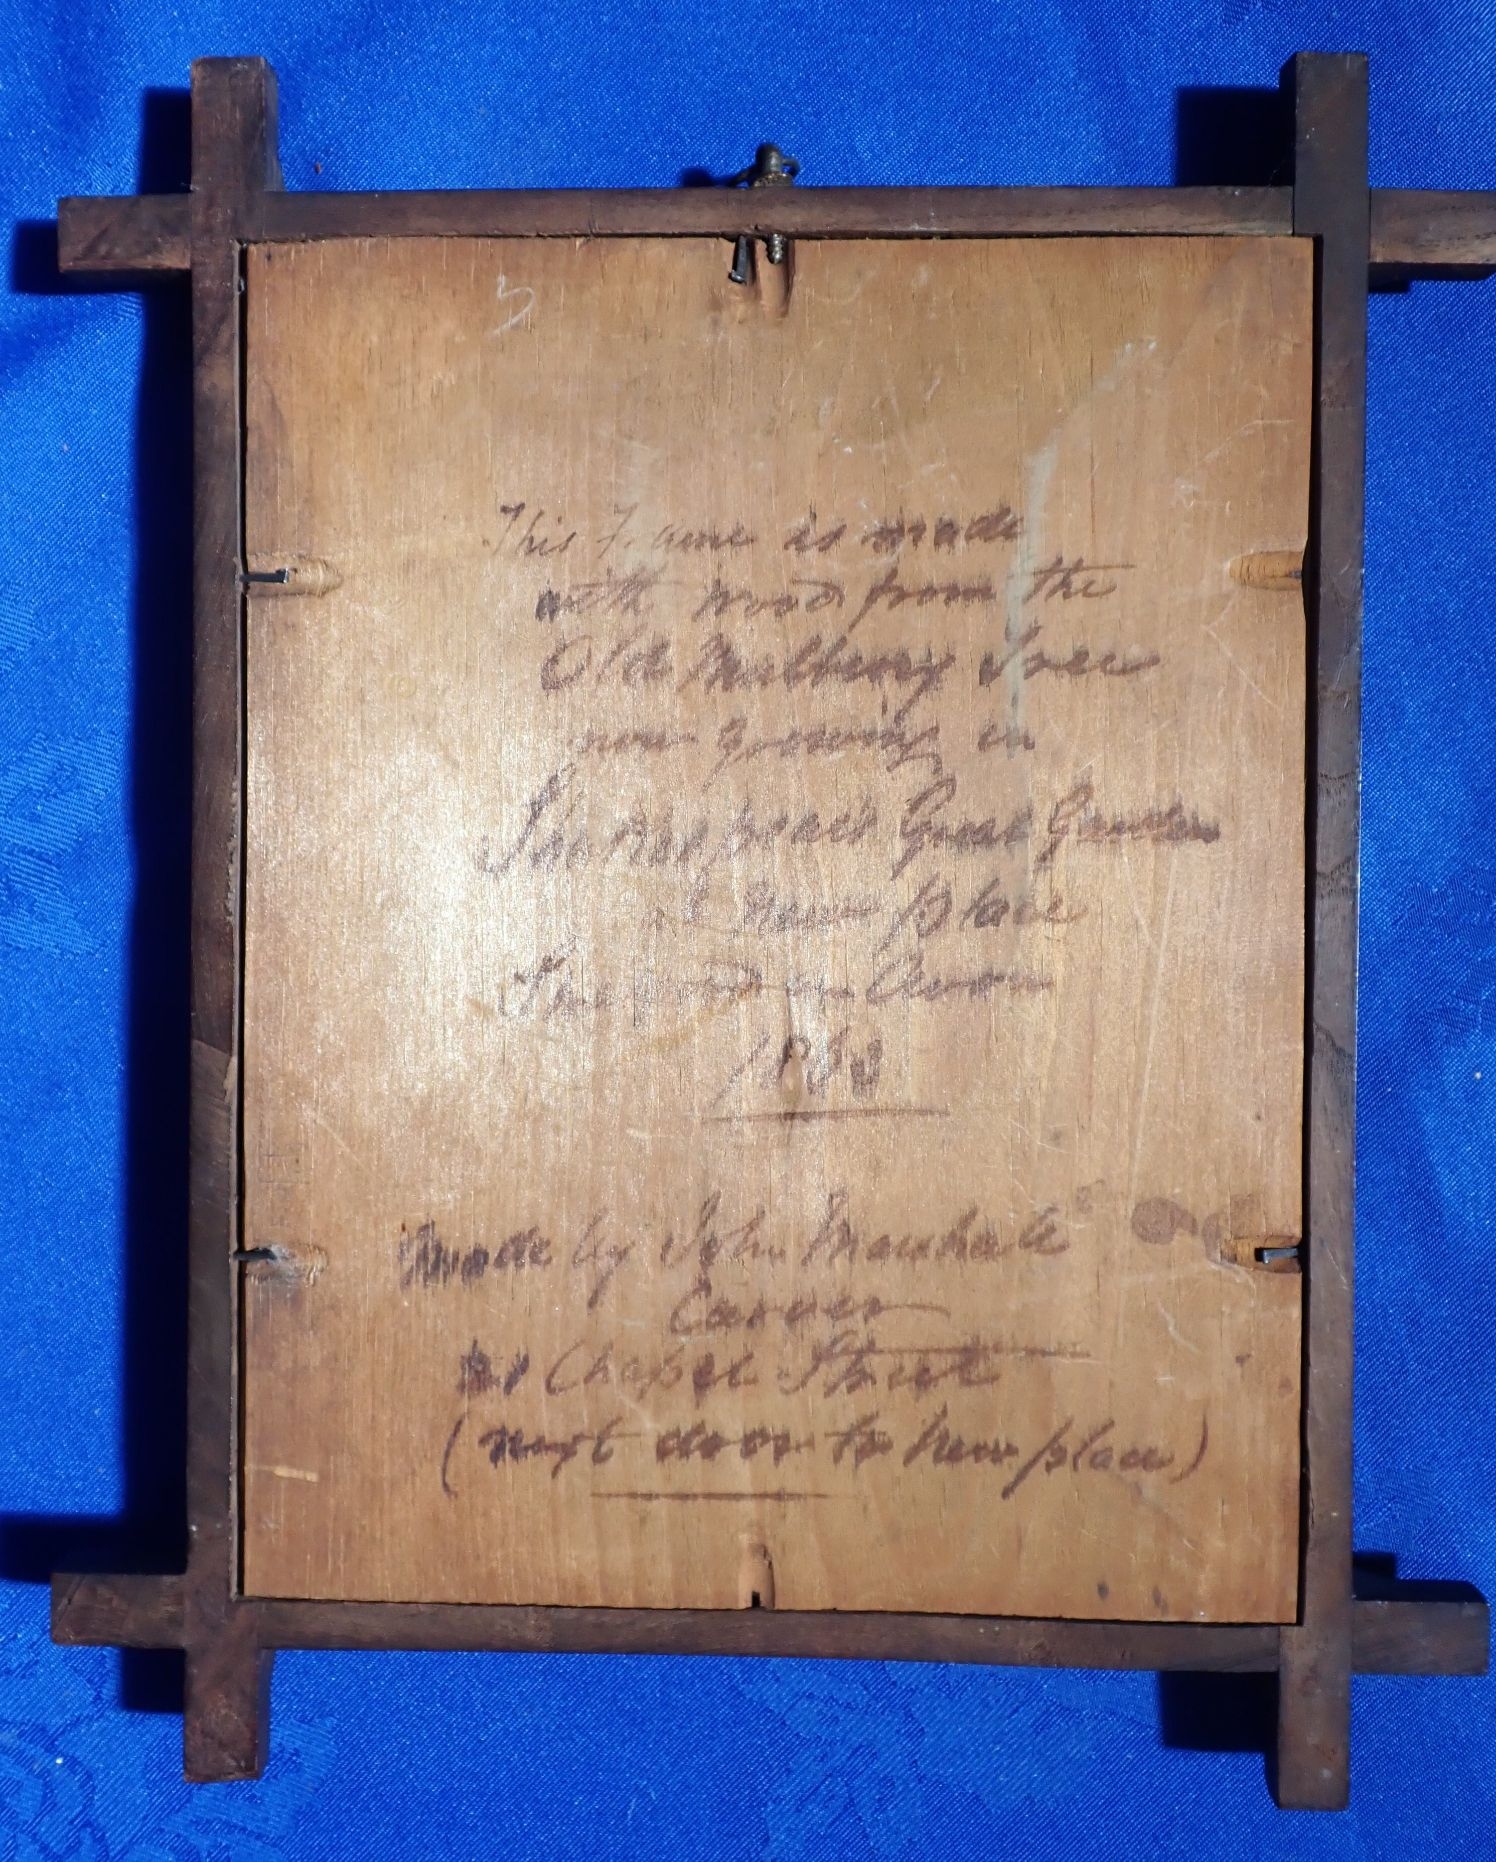 This Frame is made
with wood from the
Old Mulberry Tree
now growing in
Shakespeare's Great Garden
at New place
Stratford on Avon
Made by John Marshall
Carver
Chapel Street
(next door to New place)